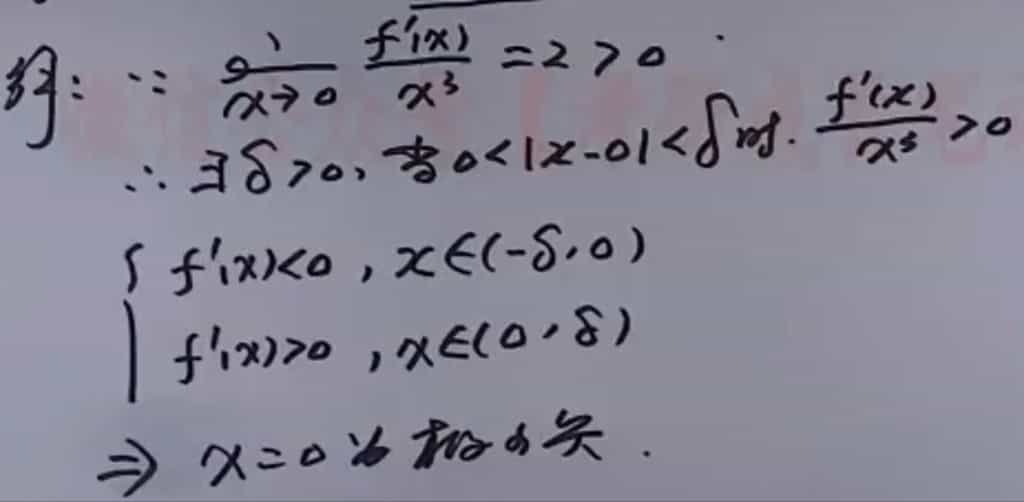 解: ∵ lim_{x→0} f'(x)/x³ = 2 > 0
∴ ∃δ>0, 当0<|x-0|<δ时. f'(x)/x³ > 0
{ f'(x)<0, x∈(-δ,0)
f'(x)>0, x∈(0,δ)
⇒ x=0为极小点.